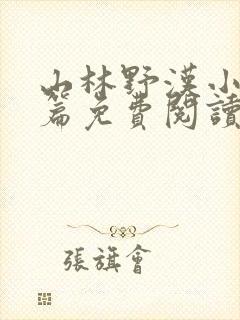 山林野漢小
篇免費閱讀
張旗會